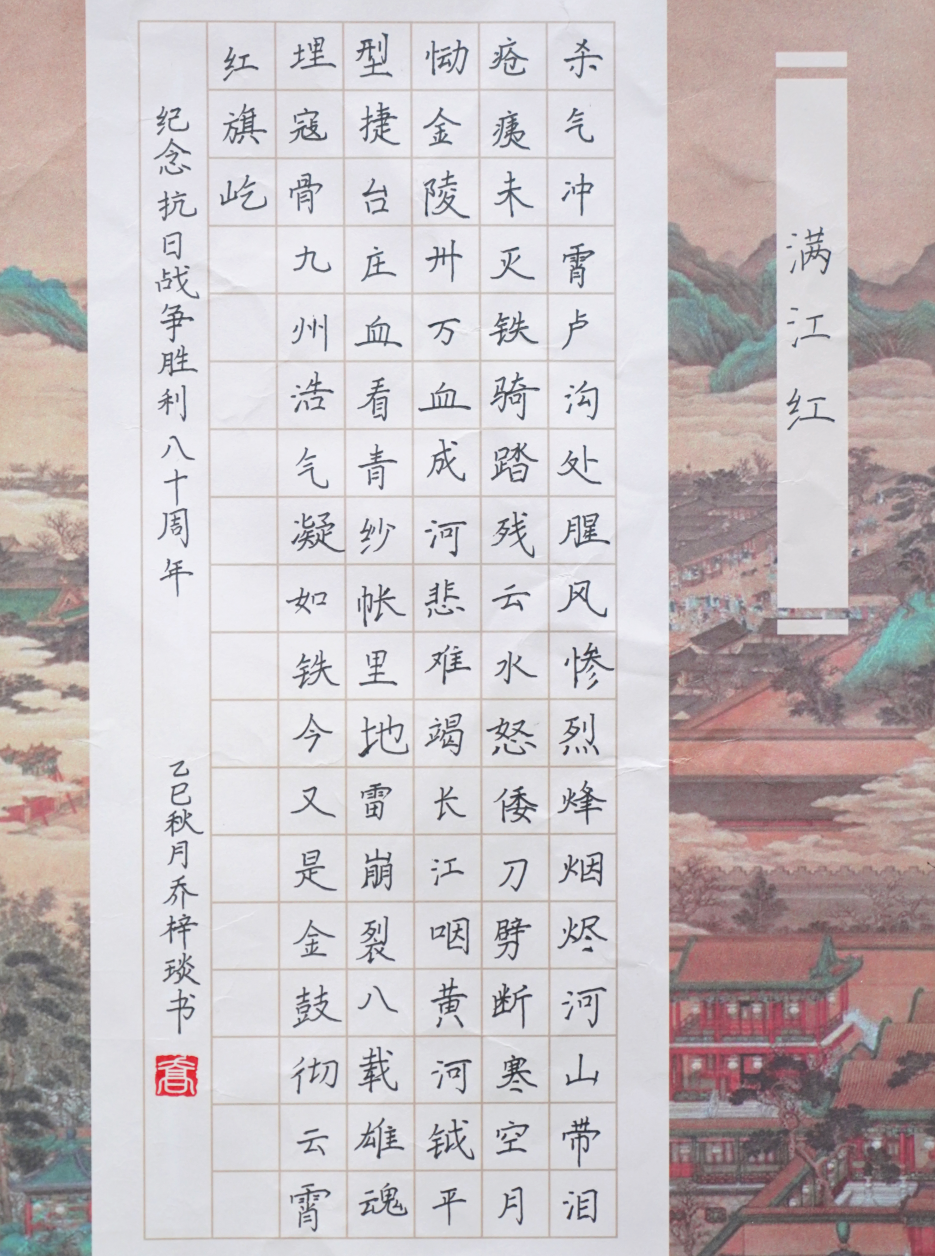 满江红
杀气冲霄卢沟处腥风惨烈烽烟烬河山带泪
疮痍未灭铁骑踏残云水怒倭刀劈断寒空月
恸金陵卅万血成河悲难竭长江咽黄河钺平
型捷台庄血看青纱帐里地雷崩裂八载雄魂
埋寇骨九州浩气凝如铁今又是金鼓彻云霄
红旗屹
纪念抗日战争胜利八十周年
乙巳秋月乔梓琰书